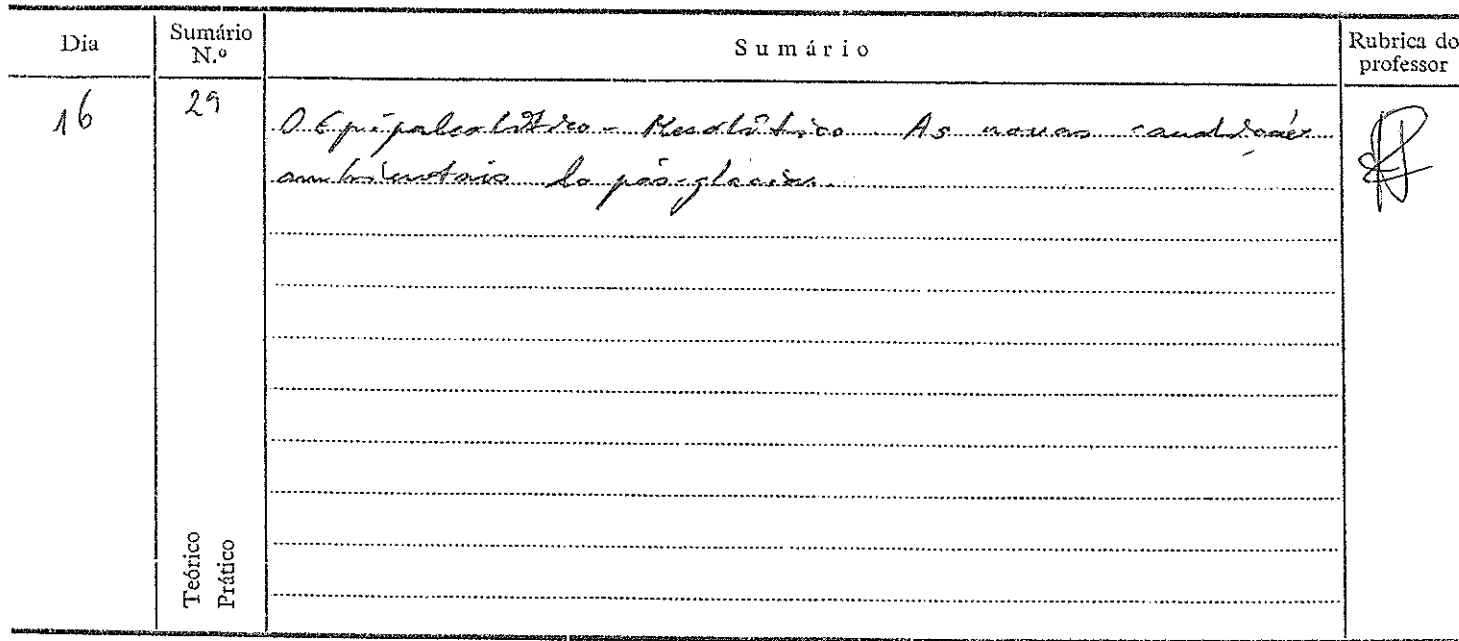 Dia
Sumário N.º
Sumário
Rubrica do professor
16
29
O Epipaleolítico - Mesolítico. As novas condições
ambientais do pós-glaciar.
Teórico
Prático